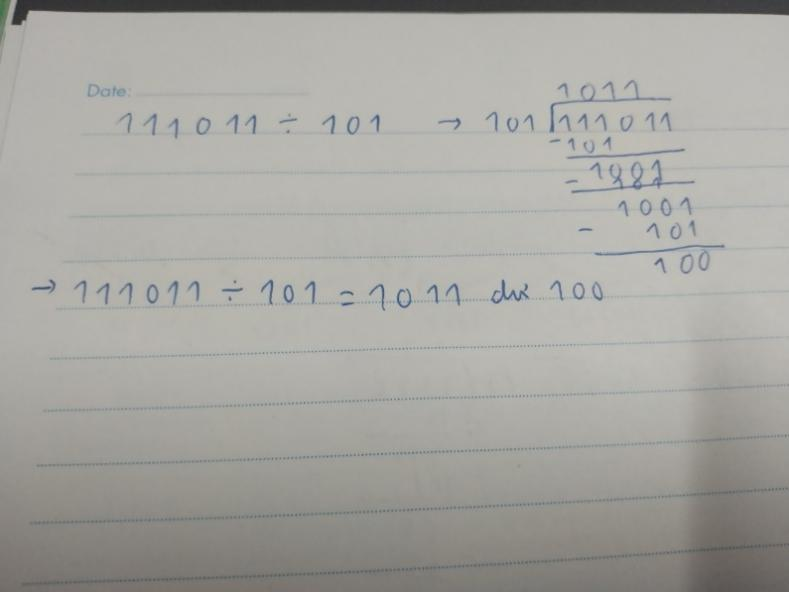 Date:
111011 ÷ 101 → 101
1011
111011
-101
-
1001
- 101
100
→ 111011 ÷ 101 = 1011 dư 100